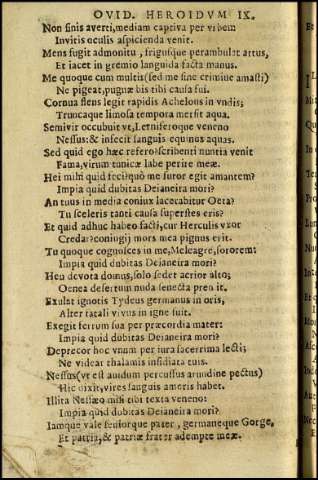 OVID. HEROIDVM IX.
Non sinis averti, mediam captiva per vrbem
Invitis oculis aspicienda venit.
Mens fugit admonitu, frigusque perambulat artus,
Et iacet in gremio languida facta manus.
Me quoque cum multis (sed me sine crimine amasti)
Ne pigeat, pugnæ bis tibi causa fui.
Cornua flens legit rapidis Achelous in vndis;
Truncaque limosa tempora mersit aqua.
Semivir occubuit vt, Lerniferoque veneno
Nessus: & infecit sanguis equinus aquas.
Sed quid ego hæc refero? scribenti nuntia venit
Fama, virum tunicæ labe perire meæ.
Hei mihi quid feci? quò me furor egit amantem?
Impia quid dubitas Deianeira mori?
An tuus in media coniux lacerabitur Oeta?
Tu sceleris tanti causa superstes eris?
Et quid adhuc habeo facti, cur Herculis vxor
Credar? coniugij mors mea pignus erit.
Tu quoque cognosces in me, Meleagre, sororem:
Impia quid dubitas Deianeira mori?
Heu devota domus, solo sedet acrior alto;
Oenea desertum nuda senecta prem it.
Exulat ignotis Tydeus germanus in oris,
Alter fatali vivus in igne fuit.
Exegit ferrum sua per præcordia mater:
Impia quid dubitas Deianeira mori?
Deprecor hoc vnum per iura sacerrima lecti;
Ne videar thalamis insidiata tuis.
Nessus (vt est avidum percussus arundine pectus)
Hic dixit, vires sanguis amoris habet.
Illita Nessæo misi tibi texta veneno:
Impia quid dubitas Deianeira mori?
Iamque vale seniorque pater, germaneque Gorge,
Et patria, & patriæ frater adempte meæ.